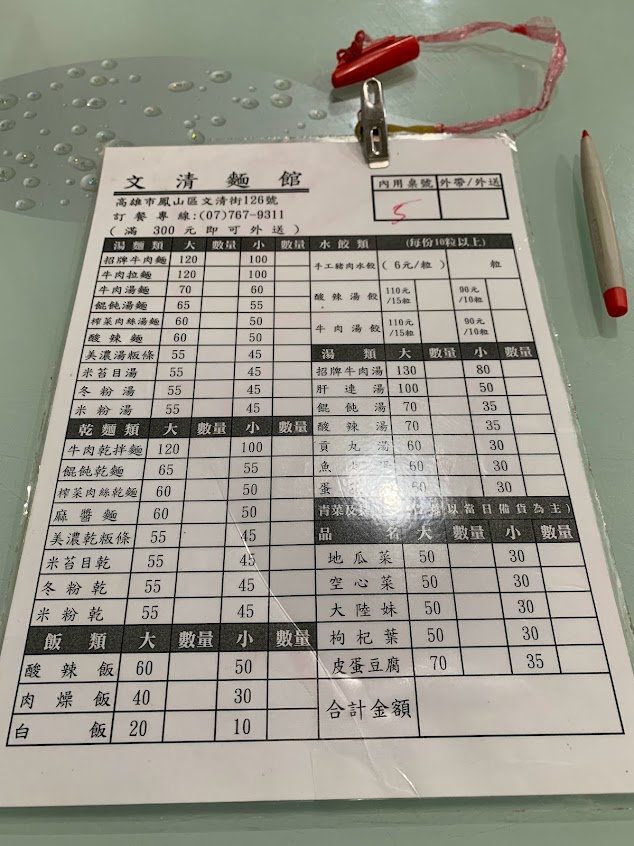 文清麵館
高雄市鳳山區文清街126號
訂餐專線:(07)767-9311
(滿 300 元即可外送)
內用桌號 外帶/外送
5
湯麵類 大 數量 小 數量
招牌牛肉麵 120 100
牛肉拉麵 120 100
牛肉湯麵 70 60
餛飩湯麵 65 55
榨菜肉絲湯麵 60 50
酸辣麵 60 50
美濃湯粄條 55 45
米苔目湯 55 45
冬粉湯 55 45
米粉湯 55 45
乾麵類 大 數量 小 數量
牛肉乾拌麵 120 100
餛飩乾麵 65 55
榨菜肉絲乾麵 60 50
麻醬麵 60 50
美濃乾粄條 55 45
米苔目乾 55 45
冬粉乾 55 45
米粉乾 55 45
飯類 大 數量 小 數量
酸辣飯 60 50
肉燥飯 40 30
白飯 20 10
水餃類 (每份10粒以上)
手工豬肉水餃 (6元/粒) 粒
酸辣湯餃 110元/15粒 90元/10粒
牛肉湯餃 110元/15粒 90元/10粒
湯類 大 數量 小 數量
招牌牛肉湯 130 80
肝連湯 100 50
餛飩湯 70 35
酸辣湯 70 35
貢丸湯 60 30
魚 60 30
蛋 30
青菜 以當日備貨為主)
品名 大 數量 小 數量
地瓜菜 50 30
空心菜 50 30
大陸妹 50 30
枸杞葉 50 30
皮蛋豆腐 70 35
合計金額